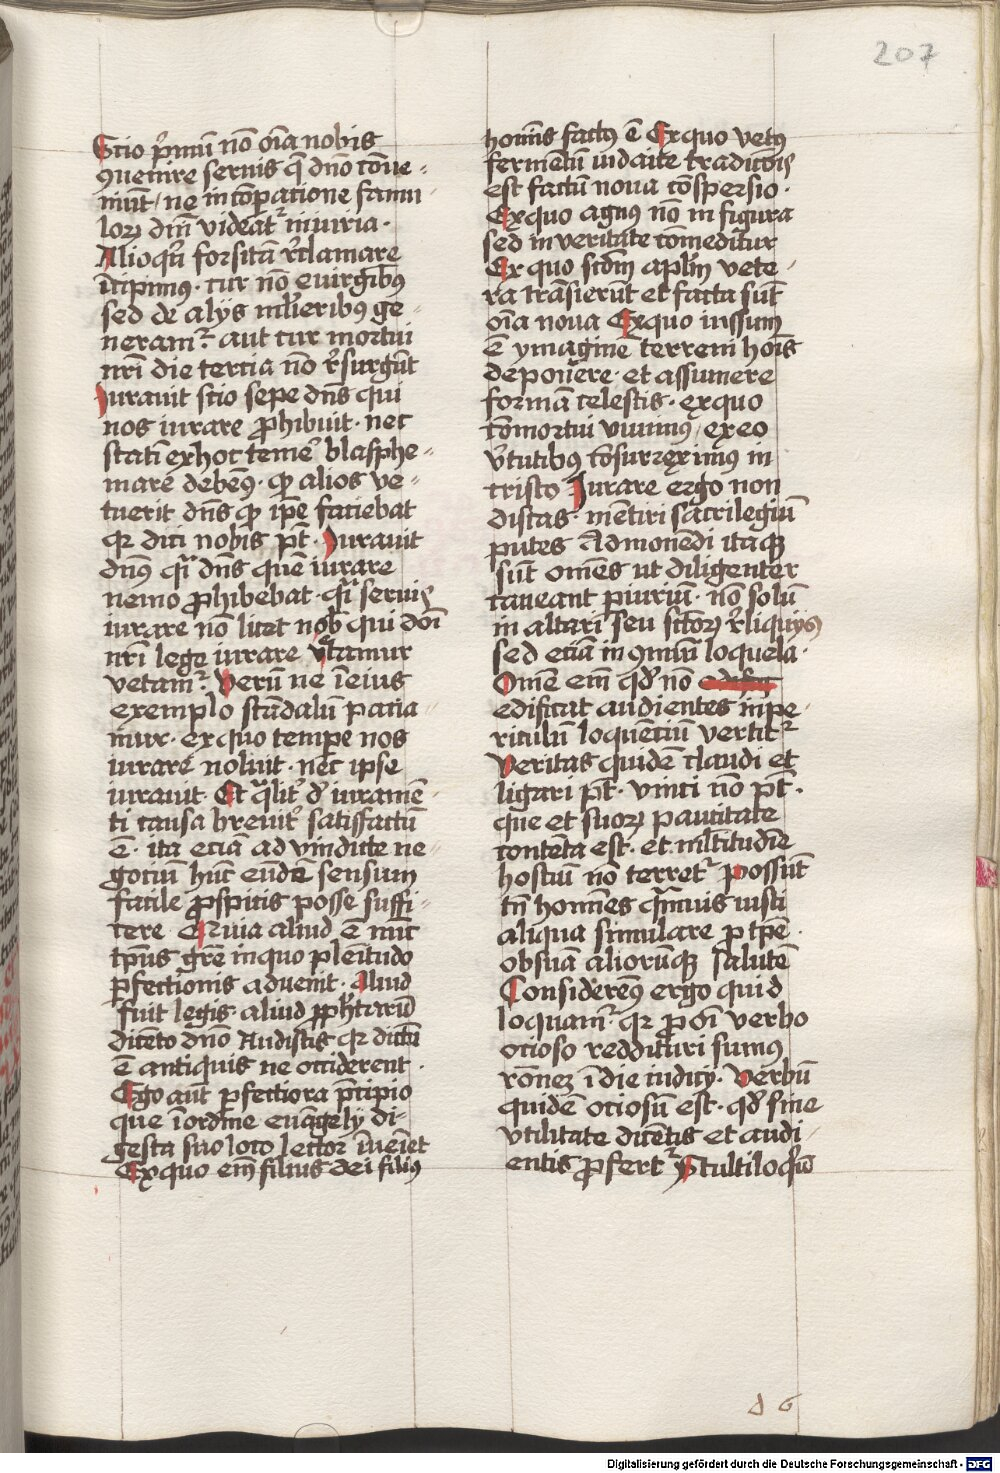 207
Scio pͥmũ nõ oĩa nobis
ꝯuenire seruis q̃ dño cõue⸗
niũt / ne in cõpatione famu
loꝝ dñi videat᷑ iniuria ·
Alioqͥn forsitã r̃clamare
ĩcipimus · cur nõ e uirgĩbus
sed de alijs ml̃ieribus ge⸗
neram᷑ · aut cur mortui
nr̃i die tercia nõ r̃surgũt
Jurauit scio sepe dñs qui
nos iurare ꝓhibuit · nec
statĩ ex hoc temeͤ blasphe⸗
mare debemꝰ · qꝛ alios ve⸗
tuerit dñs qꝛ ip̃e faciebat
qꝛ dici nobis pt̃ · Jurauit
dñus qͣi dñs quẽ iurare
nemo ꝓhibebat · qͣi seruis
iurare nõ licet nob̃ qui dñi
nr̃i lege iurare
vetam᷑ · Verũ ne ĩ eius
exemplo scãdalũ pacia⸗
mur · ex quo tempe nos
iurare noluit · nec ipse
iurauit · Et qͣlit᷑ d̃ iuramẽ⸗
ti causa breuit᷑ satisfactũ
ẽ · ita eciã ad vindicte ne⸗
gociũ hũc eũdẽ sensum
facile ꝓspicis posse suffi⸗
cere · Quia aliud ẽ nũc
tp̃us gr̃e in quo plẽitudo
ꝑfectionis aduenit · Aliud
fuit legis · aliud ꝓph̃tarũ
dicẽto dño Audistis qꝛ dictũ
ẽ antiquis ne occiderent ·
Ego aũt ꝑfectiora p̃cipio
que ĩ ordine euãgelij di⸗
gesta suo loco lector ĩueĩet
Ex quo em̃ filius dei filius
homĩs factus ẽ Ex quo vetus
fermẽtũ iudaice tradicõis
est factũ noua cõspersio ·
Ex quo agnus nõ in figura
sed in veritate cõmeditur
Ex quo scd̃m apl̃m vete⸗
ra trãsierũt et facta sũt
oĩa noua Ex quo iussum
ẽ ymaginẽ terreni hoĩs
deponere · et assumere
formã celestis · ex quo
cõmortui viuimus / ex eo
ꝟtutibus cõsurreximus in
cristo Jurare ergo non
discas · mẽtiri sacrilegiũ
putes Admonedi itaqꝫ
sũt omẽs ut diligenter
caueant ꝑiuriũ · nõ solũ
in altari seu sc̃toꝝ r̃liquijs
sed eciã in ꝯmũi loquela ·
Omẽ em̃ qd̃ nõ
edificat audientes in pe⸗
riculũ loquẽciũ vertit᷑
Veritas quidẽ claudi et
ligari pt̃ · vinci nõ pt̃ ·
que et suoꝝ paucitate
contẽta est · et ml̃titudĩe
hostiũ nõ terret᷑ Possũt
tñ homĩes qͣmuis iusti
aliqua simulare ꝓ tp̃e ·
ob suã aliorũqꝫ salutẽ
Consideremꝰ ergo quid
loquam᷑ · qꝛ ꝓ oĩ verbo
ocioso reddituri sumus
rõnez ĩ die iudicij · Verbũ
quidẽ ociosũ est · qd̃ sine
vtilitate dicẽtis et audi⸗
entis ꝓfert᷑ Stultiloqͥũ
d 6
Digitalisierung gefördert durch die Deutsche Forschungsgemeinschaft - DFG